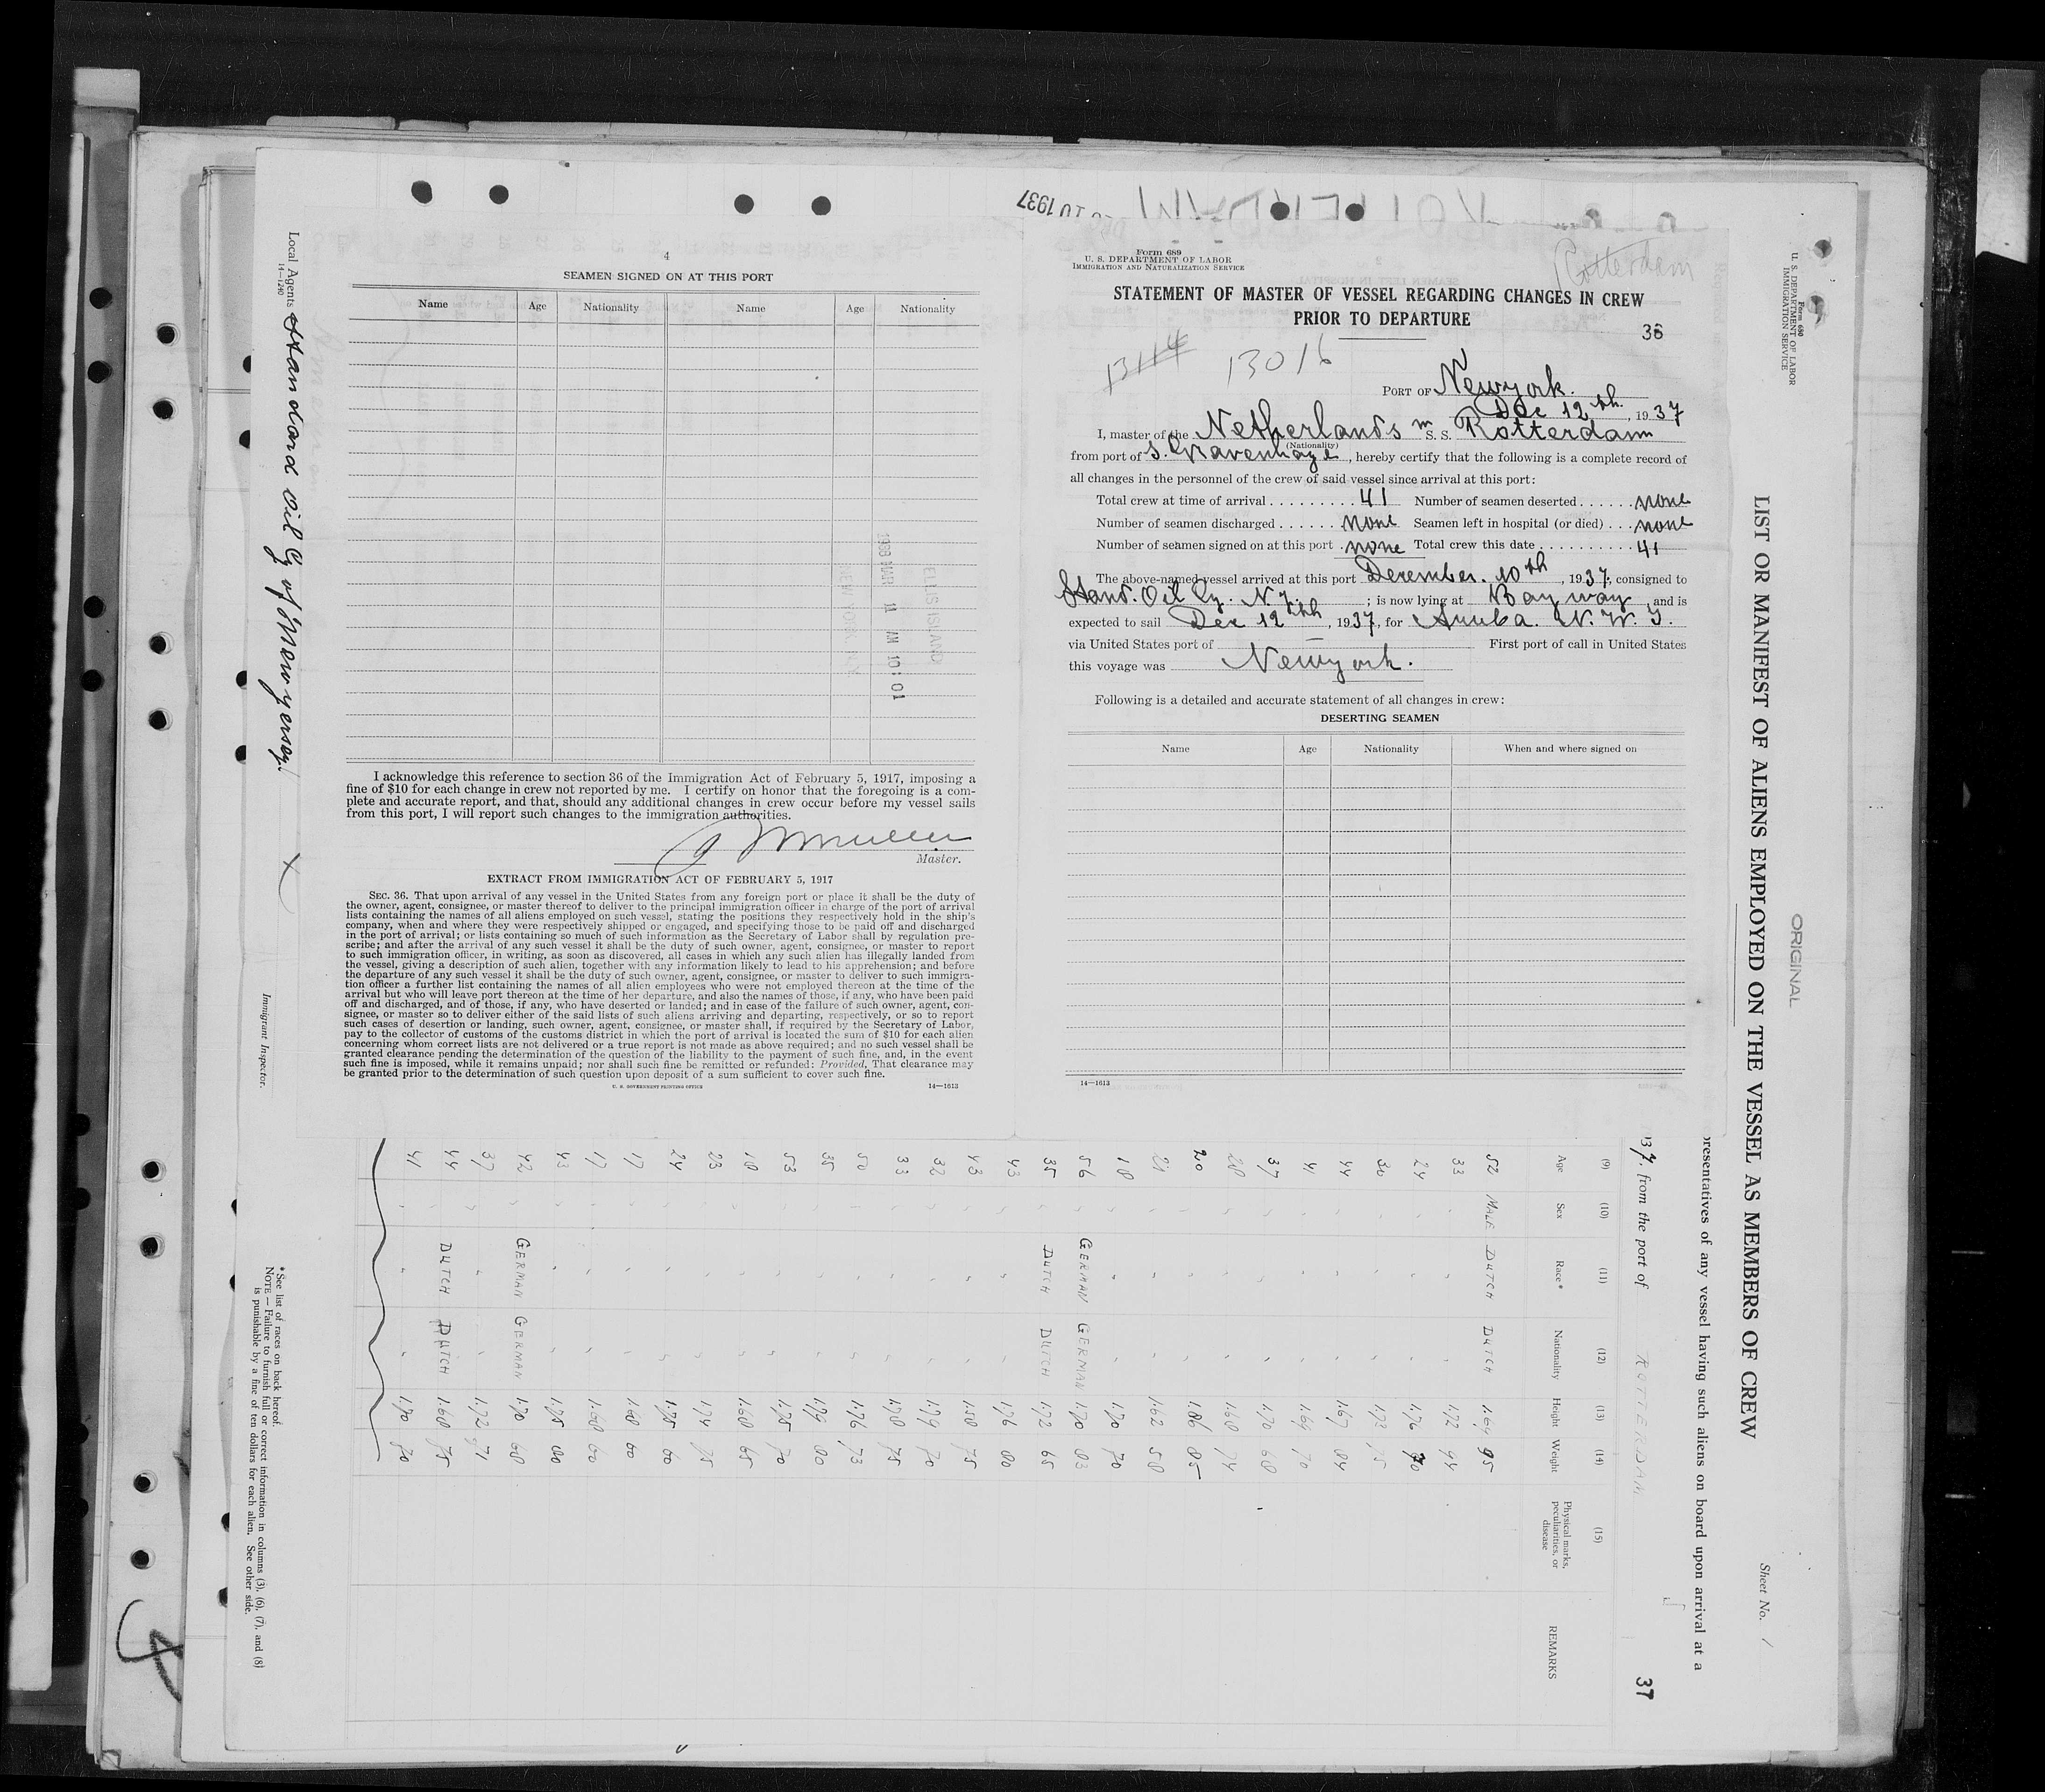 DEC 10 1937
4
SEAMEN SIGNED ON AT THIS PORT
Name Age Nationality Name Age Nationality
ELLIS ISLAND
1938 MAR 11 AM 10:01
NEW YORK
I acknowledge this reference to section 36 of the Immigration Act of February 5, 1917, imposing a
fine of $10 for each change in crew not reported by me. I certify on honor that the foregoing is a com-
plete and accurate report, and that, should any additional changes in crew occur before my vessel sails
from this port, I will report such changes to the immigration authorities.
Master.
EXTRACT FROM IMMIGRATION ACT OF FEBRUARY 5, 1917
SEC. 36. That upon arrival of any vessel in the United States from any foreign port or place it shall be the duty of
the owner, agent, consignee, or master thereof to deliver to the principal immigration officer in charge of the port of arrival
lists containing the names of all aliens employed on such vessel, stating the positions they respectively hold in the ship's
company, when and where they were respectively shipped or engaged, and specifying those to be paid off and discharged
in the port of arrival; or lists containing so much of such information as the Secretary of Labor shall by regulation pre-
scribe; and after the arrival of any such vessel it shall be the duty of such owner, agent, consignee, or master to report
to such immigration officer, in writing, as soon as discovered, all cases in which any such alien has illegally landed from
the vessel, giving a description of such alien, together with any information likely to lead to his apprehension; and before
the departure of any such vessel it shall be the duty of such owner, agent, consignee, or master to deliver to such immigra-
tion officer a further list containing the names of all alien employees who were not employed thereon at the time of the
arrival but who will leave port thereon at the time of her departure, and also the names of those, if any, who have been paid
off and discharged, and of those, if any, who have deserted or landed; and in case of the failure of such owner, agent, con-
signee, or master so to deliver either of the said lists of such aliens arriving and departing, respectively, or so to report
such cases of desertion or landing, such owner, agent, consignee, or master shall, if required by the Secretary of Labor,
pay to the collector of customs of the customs district in which the port of arrival is located the sum of $10 for each alien
concerning whom correct lists are not delivered or a true report is not made as above required; and no such vessel shall be
granted clearance pending the determination of the question of the liability to the payment of such fine, and, in the event
such fine is imposed, while it remains unpaid; nor shall such fine be remitted or refunded: Provided, That clearance may
be granted prior to the determination of such question upon deposit of a sum sufficient to cover such fine.
U. S. GOVERNMENT PRINTING OFFICE 14—1613
Form 689
U. S. DEPARTMENT OF LABOR
IMMIGRATION AND NATURALIZATION SERVICE
Rotterdam
STATEMENT OF MASTER OF VESSEL REGARDING CHANGES IN CREW
PRIOR TO DEPARTURE
36
13114 13016
PORT OF Newyork.
Dec 12th, 1937
I, master of the Netherlands m S. S. Rotterdam
(Nationality)
from port of s. Gravenhage, hereby certify that the following is a complete record of
all changes in the personnel of the crew of said vessel since arrival at this port:
Total crew at time of arrival 41 Number of seamen deserted none
Number of seamen discharged none Seamen left in hospital (or died) none
Number of seamen signed on at this port none Total crew this date 41
The above-named vessel arrived at this port December. 10th, 1937, consigned to
Stand. Oil Cy. N.J. ; is now lying at Bayway, and is
expected to sail Dec 12th, 1937, for Aruba. N. W. I.
via United States port of — First port of call in United States
this voyage was Newyork.
Following is a detailed and accurate statement of all changes in crew:
DESERTING SEAMEN
Name Age Nationality When and where signed on
14—1613
Form 680
U. S. DEPARTMENT OF LABOR
IMMIGRATION SERVICE
ORIGINAL
LIST OR MANIFEST OF ALIENS EMPLOYED ON THE VESSEL AS MEMBERS OF CREW
Sheet No. 1
presentatives of any vessel having such aliens on board upon arrival at a
1937, from the port of ROTTERDAM
37
(9) (10) (11) (12) (13) (14) (15)
Age Sex Race* Nationality Height Weight Physical marks, peculiarities, or disease REMARKS
52 MALE DUTCH DUTCH 1.64 95
33 " " " 1.72 94
24 " " " 1.76 70
30 " " " 1.73 75
44 " " " 1.67 84
41 " " " 1.69 70
37 " " " 1.70 68
28 " " " 1.68 74
20 " " " 1.86 85
21 " " " 1.62 58
18 " " " 1.70 70
56 " GERMAN GERMAN 1.70 83
35 " DUTCH DUTCH 1.72 65
43 " " " 1.76 80
43 " " " 1.58 75
32 " " " 1.79 70
33 " " " 1.78 75
50 " " " 1.76 73
35 " " " 1.79 80
53 " " " 1.75 70
18 " " " 1.68 65
23 " " " 1.74 75
24 " " " 1.75 60
17 " " " 1.68 60
17 " " " 1.60 60
43 " " " 1.75 80
42 " GERMAN GERMAN 1.70 68
37 " " " 1.72 71
44 " DUTCH DUTCH 1.68 75
41 " " " 1.70 70
Local Agents Standard Oil Cy of New yersey.
14—1240
Immigrant Inspector.
* See list of races on back hereof.
NOTE — Failure to furnish full or correct information in columns (3), (6), (7), and (8)
is punishable by a fine of ten dollars for each alien. See other side.